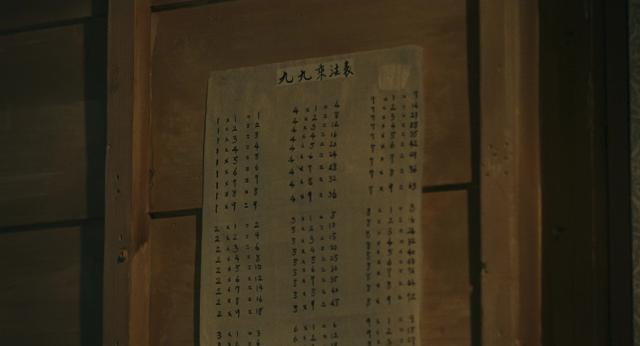 九九乘法表
1 × 1 = 1
1 × 2 = 2
1 × 3 = 3
1 × 4 = 4
1 × 5 = 5
1 × 6 = 6
1 × 7 = 7
1 × 8 = 8
1 × 9 = 9
2 × 1 = 2
2 × 2 = 4
2 × 3 = 6
2 × 4 = 8
2 × 5 = 10
2 × 6 = 12
2 × 7 = 14
2 × 8 = 16
2 × 9 = 18
3 × 1 = 3
4 × 1 = 4
4 × 2 = 8
4 × 3 = 12
4 × 4 = 16
4 × 5 = 20
4 × 6 = 24
4 × 7 = 28
4 × 8 = 32
4 × 9 = 36
5 × 1 = 5
5 × 2 = 10
5 × 3 = 15
5 × 4 = 20
5 × 5 = 25
5 × 6 = 30
5 × 7 = 35
5 × 8 = 40
5 × 9 = 45
6 × 1 = 6
6 × 2 = 12
7 × 1 = 7
7 × 2 = 14
7 × 3 = 21
7 × 4 = 28
7 × 5 = 35
7 × 6 = 42
7 × 7 = 49
7 × 8 = 56
7 × 9 = 63
8 × 1 = 8
8 × 2 = 16
8 × 3 = 24
8 × 4 = 32
8 × 5 = 40
8 × 6 = 48
8 × 7 = 56
8 × 8 = 64
8 × 9 = 72
9 × 1 = 9
9 × 2 = 18